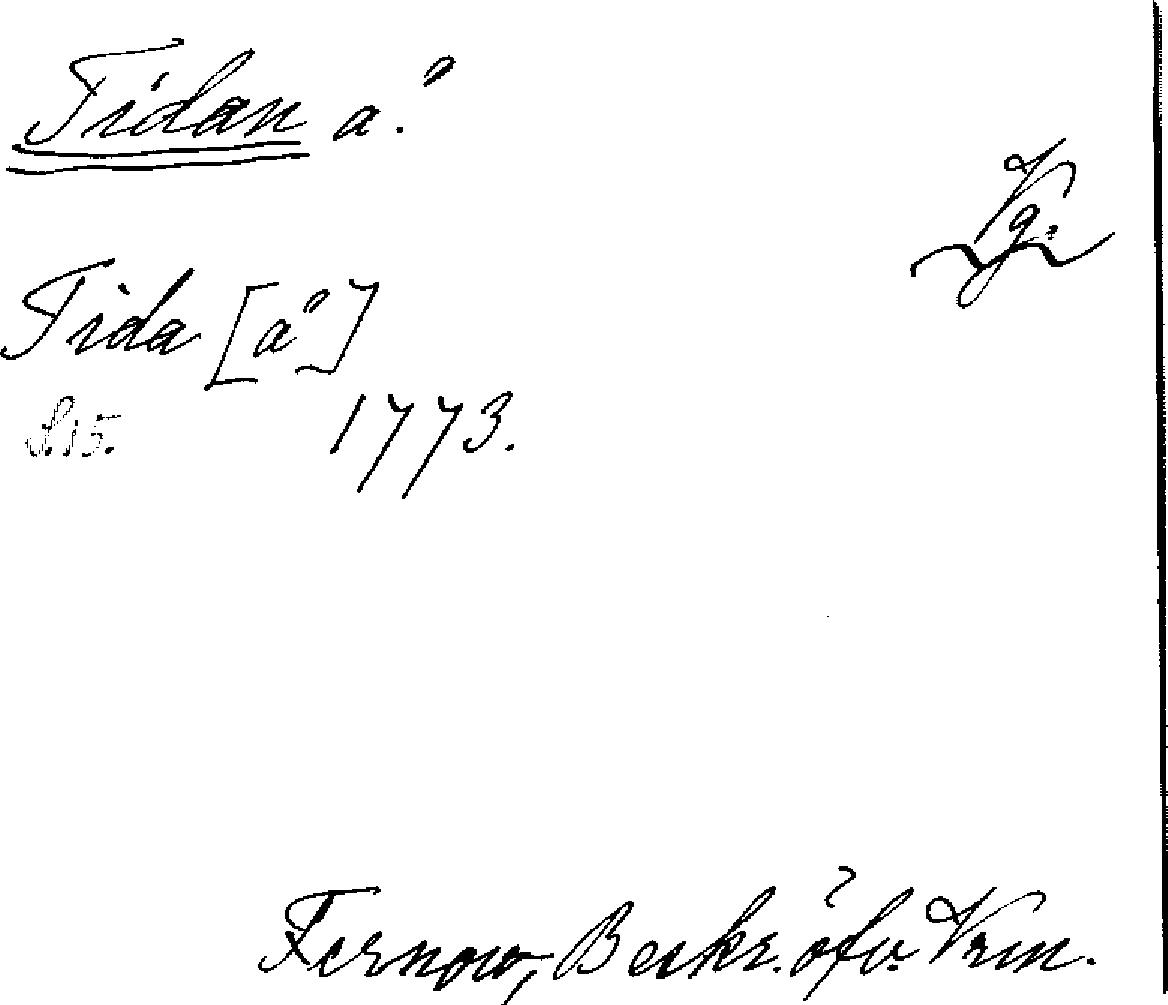 Tidan å.
Vg.
Tida [å]
S. 15. 1773.
Fernow, Beskr. öfv. Vrm.